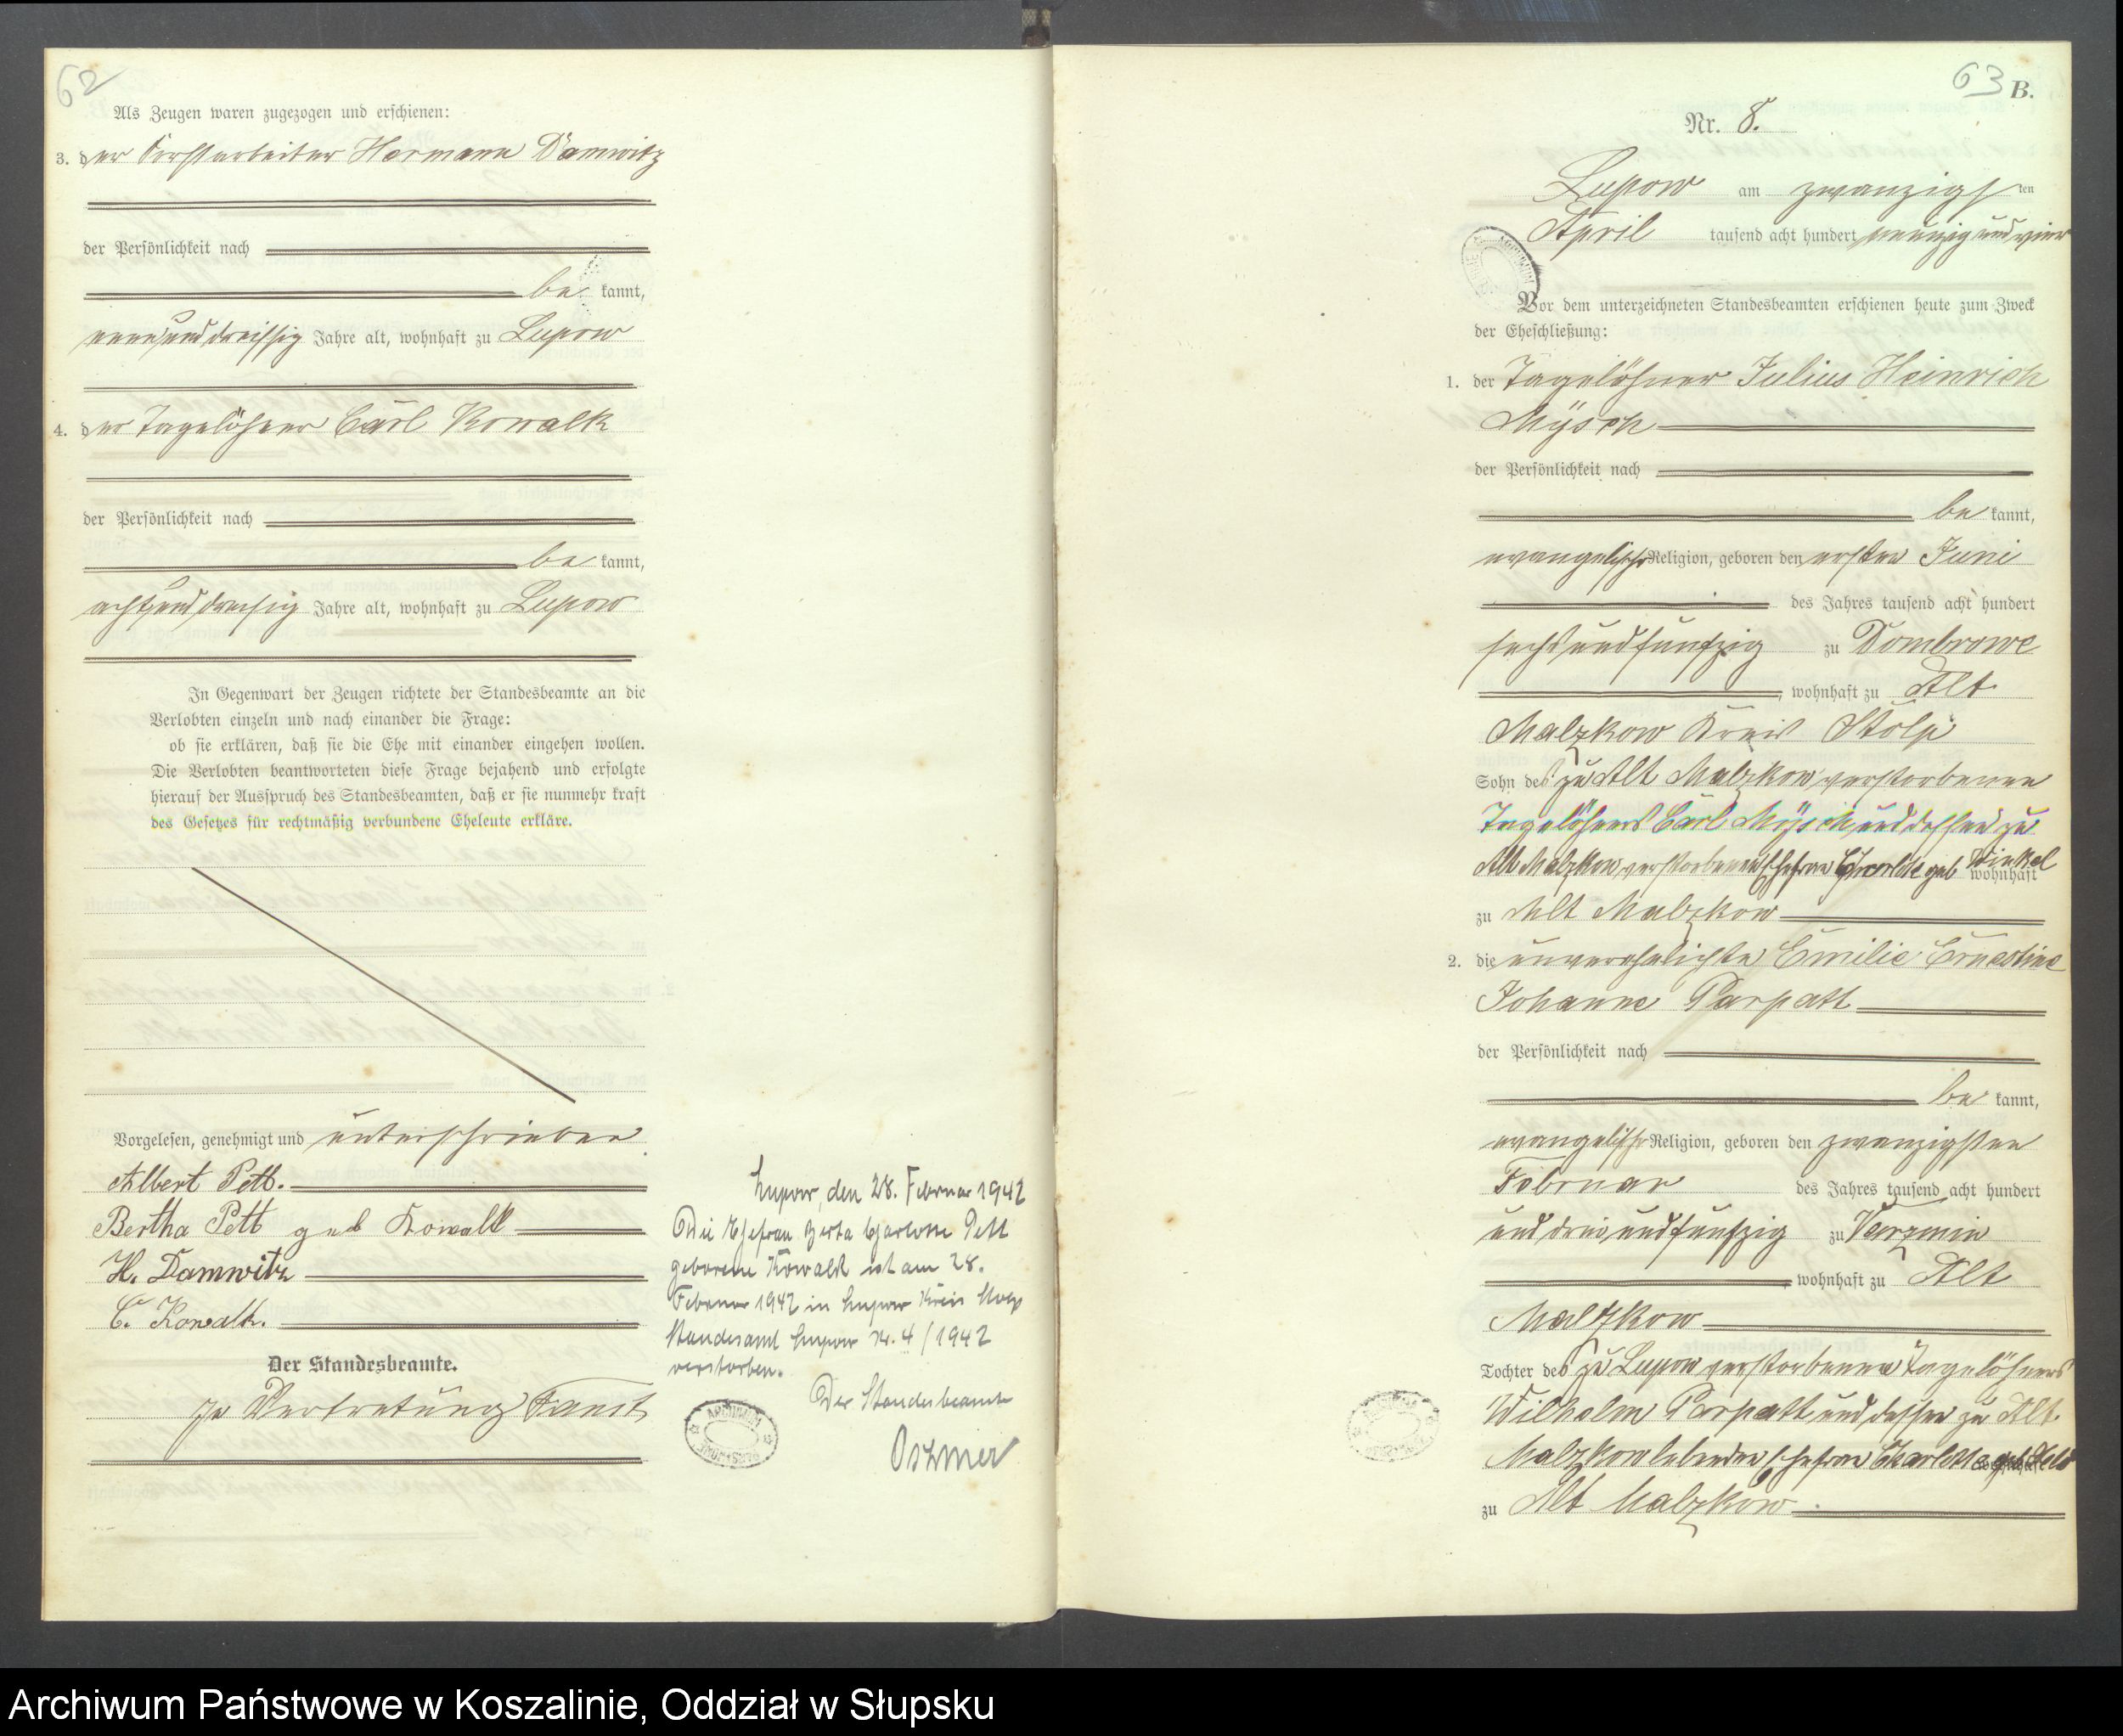 62
Als Zeugen waren zugezogen und erschienen:
3. der Forstarbeiter Hermann Damwitz
der Persönlichkeit nach
be kannt,
neununddreissig Jahre alt, wohnhaft zu Lupow
4. der Tagelöhner Carl Kowalk
der Persönlichkeit nach
be kannt,
achtunddreissig Jahre alt, wohnhaft zu Lupow
In Gegenwart der Zeugen richtete der Standesbeamte an die
Verlobten einzeln und nach einander die Frage:
ob sie erklären, daß sie die Ehe mit einander eingehen wollen.
Die Verlobten beantworteten diese Frage bejahend und erfolgte
hierauf der Ausspruch des Standesbeamten, daß er sie nunmehr kraft
des Gesetzes für rechtmäßig verbundene Eheleute erkläre.
Vorgelesen, genehmigt und unterschrieben
Albert Pett.
Bertha Pett geb Kowalk
H. Damwitz
C. Kowalk.
Der Standesbeamte.
In Vertretung Faust
Lupow, den 28. Februar 1942
Die Ehefrau Berta Charlotte Pett
geborene Kowalk ist am 28.
Februar 1942 in Lupow Kreis Stolp
Standesamt Lupow Nr. 4/1942
verstorben.
Der Standesbeamte
63 B.
Nr. 8.
Lupow am zwanzigsten
April tausend acht hundert neunzig und vier
Vor dem unterzeichneten Standesbeamten erschienen heute zum Zweck
der Eheschließung:
1. der Tagelöhner Julius Heinrich
Mÿsch
der Persönlichkeit nach
be kannt,
evangelischer Religion, geboren den ersten Juni
des Jahres tausend acht hundert
sechsundfünfzig zu Dombrowe
, wohnhaft zu Alt
Malzkow Kreis Stolp
Sohn des zu Alt Malzkow verstorbenen
Tagelöhners Carl Mÿsch und dessen zu
Alt Malzkow verstorbenen Ehefrau geb Winkel
wohnhaft
zu Alt Malzkow
2. die unverehelichte Emilie Ernestine
Johanne Parpatt
der Persönlichkeit nach
be kannt,
evangelischer Religion, geboren den zwanzigsten
Februar des Jahres tausend acht hundert
und dreiundfünfzig zu Varzmin
wohnhaft zu Alt
Malzkow
Tochter des zu Lupow verstorbenen Tagelöhners
Wilhelm Parpatt und dessen zu Alt
Malzkow lebenden Ehefrau Charlotte geb
zu Alt Malzkow
Archiwum Państwowe w Koszalinie, Oddział w Słupsku